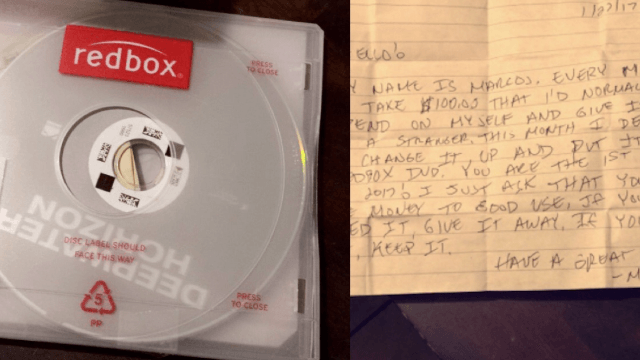 redbox.
PRESS
TO CLOSE
DEEPWATER
HORIZON
DISC LABEL SHOULD
FACE THIS WAY
5
PP
PRESS
TO CLOSE
1/22/17
ELLO!
Y NAME IS MARCOS. EVERY M
TAKE $100.00 THAT I'D NORMAL
END ON MYSELF AND GIVE I
A STRANGER. THIS MONTH I DE
CHANGE IT UP AND PUT IT
DBOX DVD. YOU ARE THE 1ST
2017! I JUST ASK THAT YO
E MONEY TO GOOD USE. IF YOU
ED IT, GIVE IT AWAY. IF YO
, KEEP IT.
HAVE A GREAT
-M